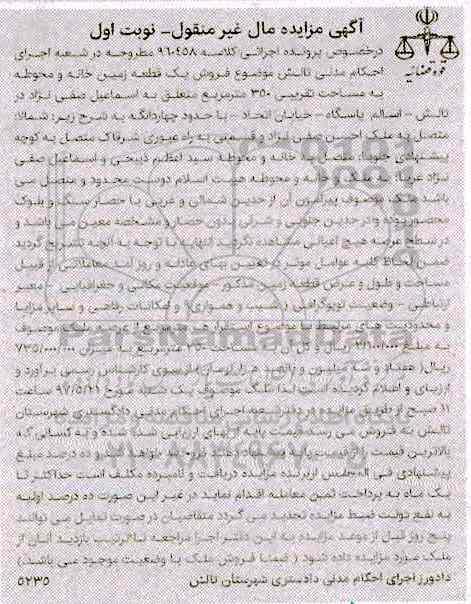 آگهی مزایده مال غیر منقول- نوبت اول
قوه قضائیه
درخصوص پرونده اجرائی کلاسه ۹۶۰۴۵۸ مطروحه در شعبه اجرای
احکام مدنی تالش موضوع فروش یک قطعه زمین خانه و محوطه
به مساحت تقریبی ۳۵۰ مترمربع متعلق به اسماعیل صفی نژاد در
تالش - اسالم پاسگاه - خیابان اتحاد - با حدود چهارگانه به شرح زیر: شمالا:
متصل به ملک احسن صفی نژاد و قسمتی به راه عبوری شرقا متصل به کوچه
پیشنهادی جنوبا: متصل به خانه و محوطه سید اعظم ذبیحی و اسماعیل صفی
نژاد غربا: به خانه و محوطه هیبت اسلام دوست محدود و متصل می
باشد ملک موصوف پیرامون آن از حدین شمالی و غربی با حصار سنگ و بلوک
محصور بوده و در حدین جنوبی و شرقی بدون حصار و مشخصه معین می باشد و
در سطح عرصه هیچ اعیانی مشاهده نگردید النهایه با توجه به آنچه تشریح گردید
ضمن لحاظ کلیه عوامل موثر در تعیین بهای عادله و روز آمد معاملاتی از قبیل
مساحت و طول و عرض قطعه زمین مذکور - موقعیت مکانی و جغرافیایی - معبر
ارتباطی - وضعیت توپوگرافی و امکانات رفاهی و سایر مزایا
و محدودیت های مرتبط با موضوع هر مترمربع از عرصه ملک موصوف
به مبلغ ریال و کل آن به مساحت ۳۵۰ مترمربع به میزان ۷۳۵/۰۰۰/۰۰۰
ریال( هفتاد و سه میلیون و پانصد هزار تومان) از سوی کارشناس رسمی برآورد و
ارزیابی و اعلام گردیده است لذا ملک موصوف یک شنبه مورخ ۹۷/۵/۲۱ ساعت
۱۱ صبح از طریق مزایده در دفتر شعبه اجرای احکام مدنی دادگستری شهرستان
تالش به فروش می رسد قیمت پایه از بهای ارزیابی شده شده و به کسانی که
بالاترین قیمت را پیشنهاد دهند فروخته خواهد شد و ده درصد مبلغ
پیشنهادی فی المجلس از برنده مزایده دریافت و نامبرده مکلف است حداکثر تا
یک ماه به پرداخت ثمن معامله اقدام نماید در غیر این صورت ده درصد اولیه
به نفع دولت ضبط مزایده تجدید می گردد متقاضیان در صورت تمایل می توانند
پنج روز قبل از موعد مزایده به این دفتر اجرا مراجعه تا ترتیب بازدید آنان از
ملک مورد مزایده داده شود ( ضمنا فروش ملک با وضعیت موجود می باشد)
دادورز اجرای احکام مدنی دادستری شهرستان تالش ۵۲۳۵
ParsNamadData